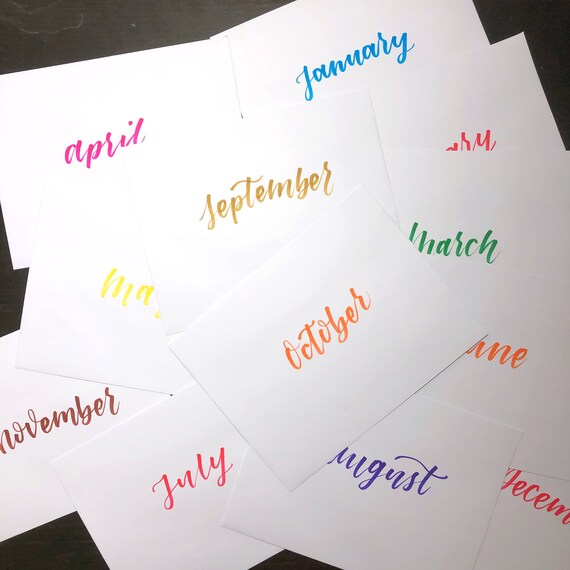 january
april
ry
september
march
may
october
une
november
july
august
decem